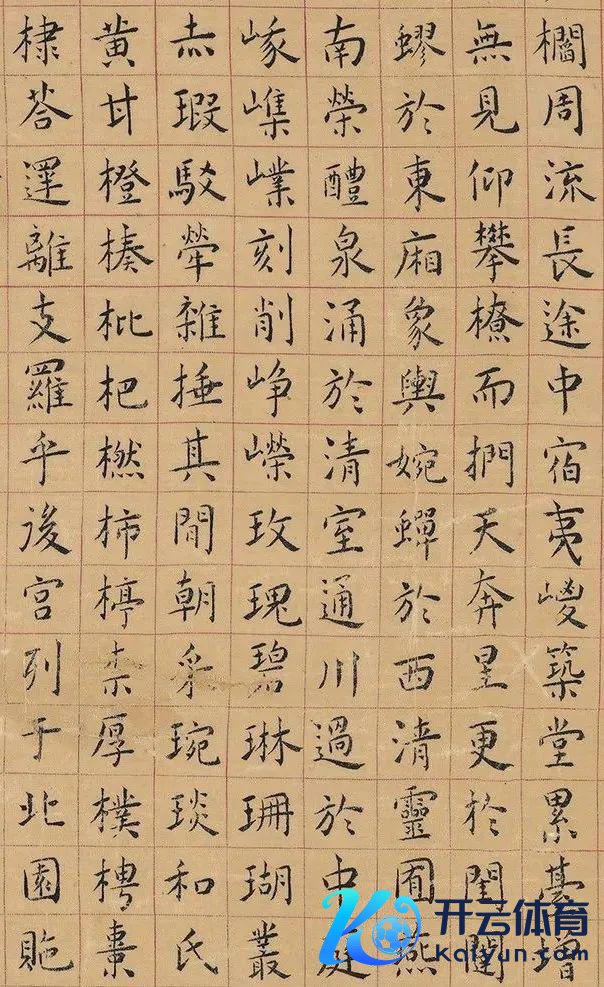 櫩周流長途中宿夷嵏築堂累臺增
無見仰攀橑而捫天奔星更於閨闥
蟉於東廂象輿婉蟬於西清靈囿燕
南榮醴泉涌於清室通川過於中庭
刻削崢嶸玫瑰碧琳珊瑚叢
赤瑕駁犖雜捶其間朝采琬琰和氏
黃甘橙楱枇杷橪柿楟柰厚樸梬棗
棣荅遝離支羅乎後宮列于北園貤
开云体育
kaiyun.com